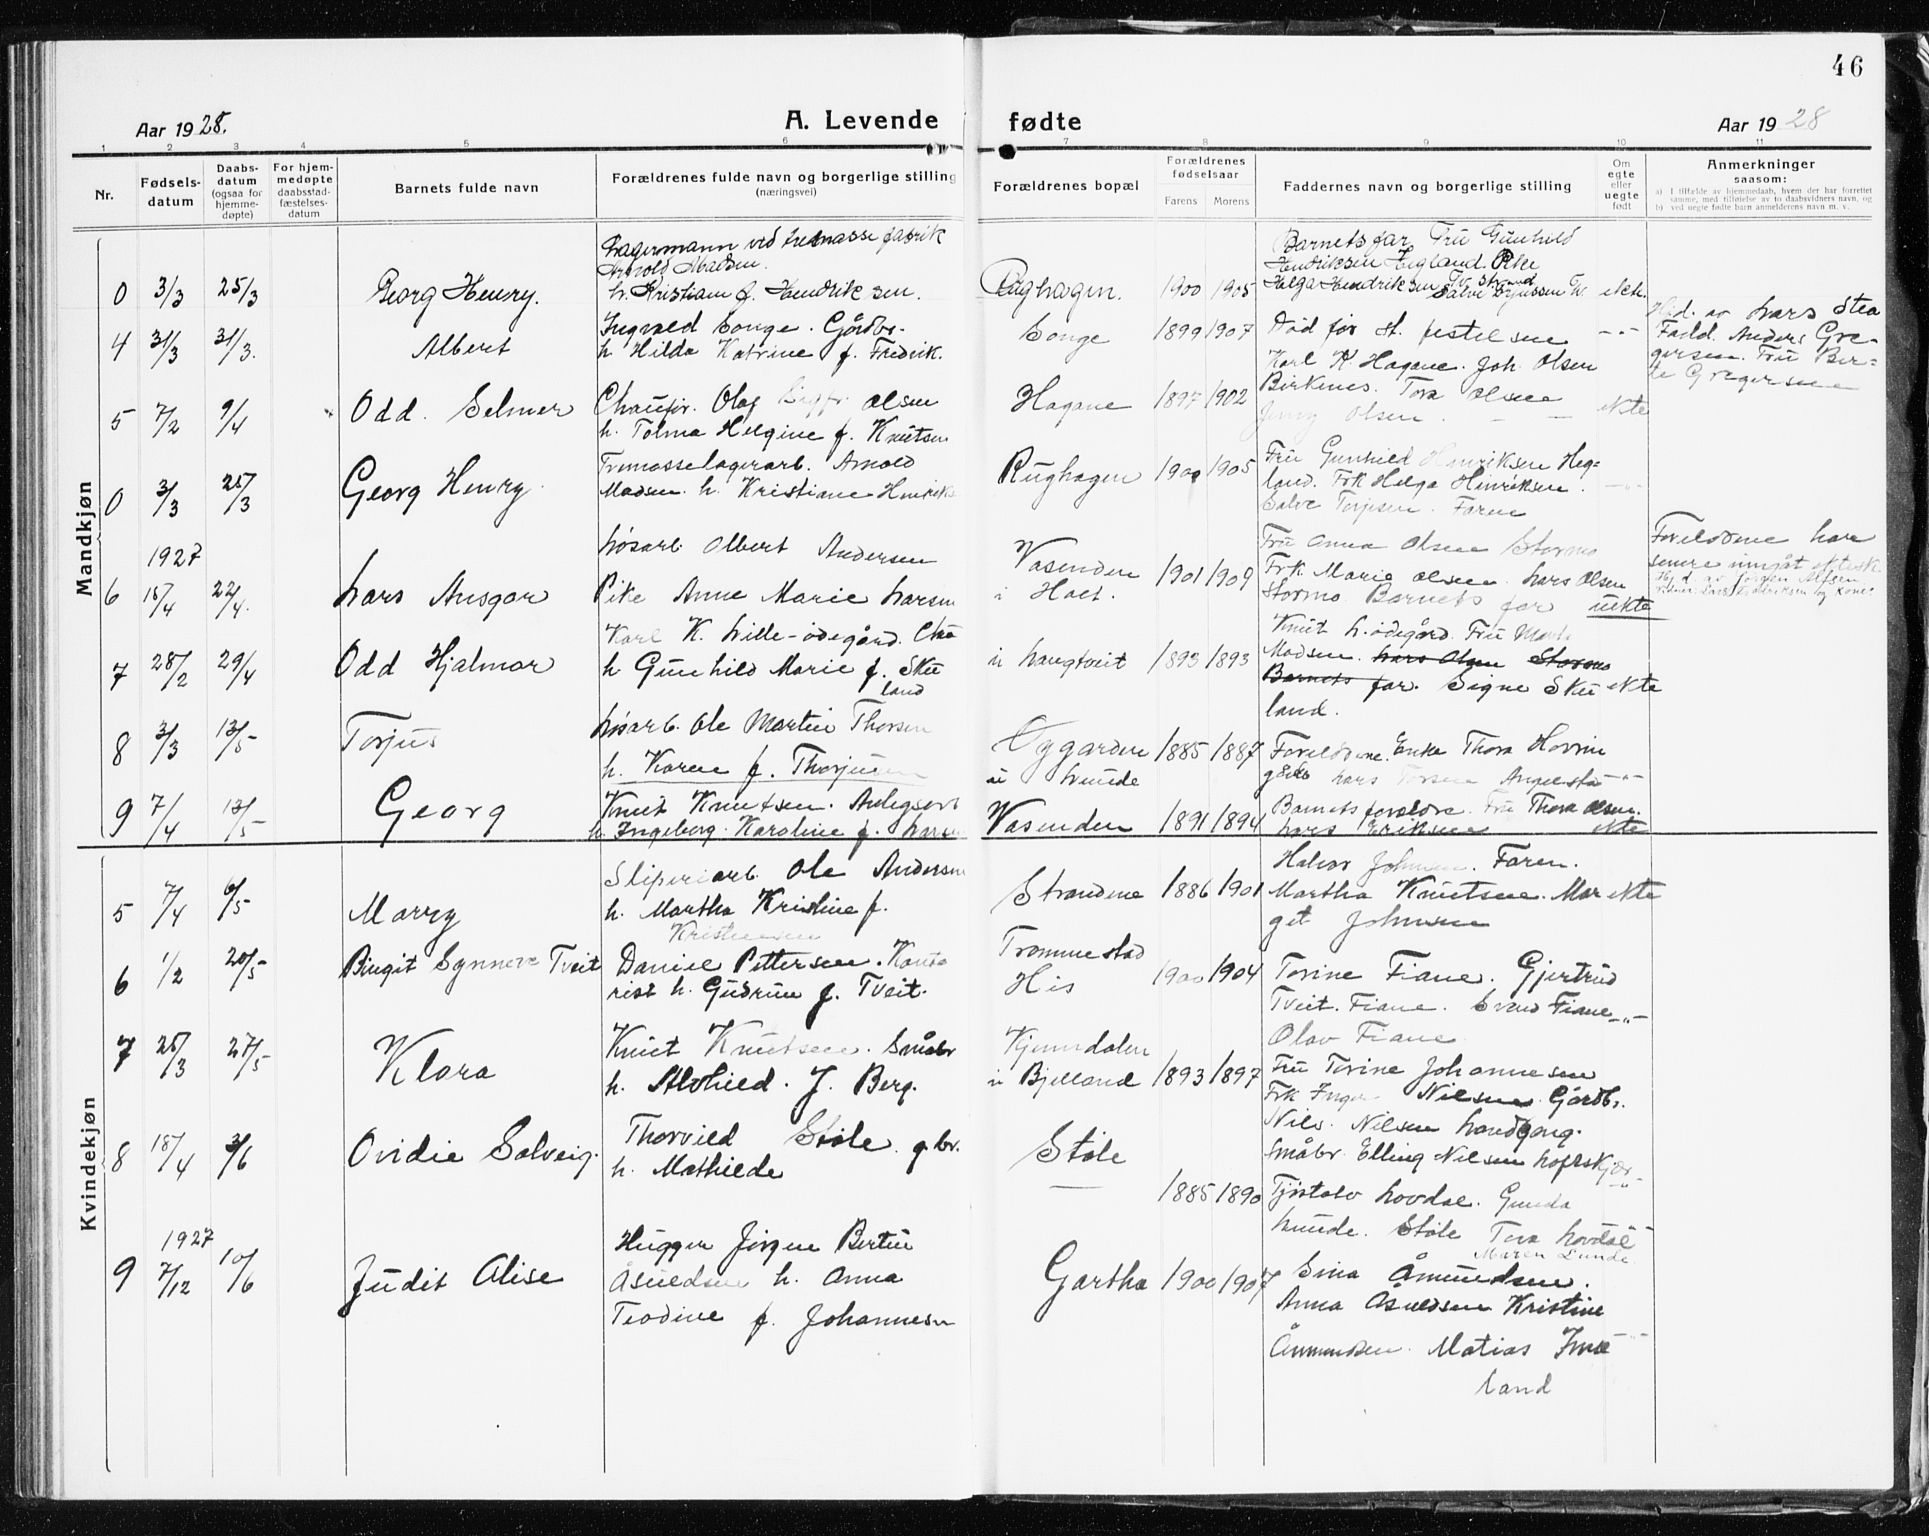 46
Aar 1928.
A. Levende
fødte
Aar 1928
1 2 3 4 5 6 7 8 9 10 11
Nr.
Fødsels-
datum
Daabs-
datum
(ogsaa for
hjemme-
døpte)
For hjem-
medøpte
daabsstad-
fæstelses-
datum
Barnets fulde navn
Forældrenes fulde navn og borgerlige stilling
(næringsvei)
Forældrenes bopæl
Forældrenes
fødselsaar
Farens Morens
Faddernes navn og borgerlige stilling
Om
egte
eller
uegte
født
Anmerkninger
saasom:
a) I tilfælde av hjemmedaab, hvem der har forrettet
samme, med tilføielse av to daabsvidners navn, og
b) ved uegte fødte barn anmelderens navn m. v.
Mandkjøn
Lagermann ved tremasse fabrik
Arnold Madsen.
0 3/3 25/3 Georg Henry. h. Kristiane f. Hendriksen.
Rughagen. 1900 1905
Barnets far Fru Gunhild
Hendriksen Hegland. Pike
Helga Hendriksen
4 31/3 31/3. Albert
Ingvald Longe. Gårdbr.
h Hilda Katrine f. Fredrik.
Longe 1899 1907 Død før st. festelsen -"-
Hjd. av Lars Stea
Fadd. Anders Gre-
gersen. Fru Ber-
te Gregersen
5 7/2 9/4 Odd. Selmer
Chaufør. Olaf Sigfr. Olsen
h. Tolma Helgine f. Knutsen
Hagane 1897 1902
Karl K. Hagane. Joh. Olsen
Birkenes. Tora Olsen
Jenny Olsen. ekte
0 3/3 25/3 Georg Henry.
Tremasselagerarb. Arnold
Madsen. h. Kristiane Henriks
Rughagen 1900 1905
Fru Gunhild Henriksen Heg-
land. Frk Helga Henriksen.
Salve Terjesen. Faren -"-
1927
6 18/4 22/4. Lars Ansgar
Løsarb. Olbert Andersen
Pike Anne Marie Larsen
Vasenden
i Holt. 1901 1909
Fru Anna Olsen Stormo
Frk. Marie Olsen. Lars Olsen
Stormo Barnets far uekte
Foreldrene har
senere inngåt ektesk.
7 28/2 29/4 Odd Hjalmar
Karl K. Lille-ødegård.
h Gunhild Marie f. Skei
land
i Langtveit 1893 1893
Knut L. ødegård. Fru Marte
Madsen. Lars Olsen Stormo
Barnets far. Signe Skei ekte
land.
8 3/3 13/5 Torjus
Løsarb. Ole Martin Thorsen
h. Karen f. Thorjusen
Øygarden
i Lunde 1885 1887
Foreldrene. Enke Thora Hovin
Lars Torsen Angelsta -"-
9 7/4 13/5 Georg
Knut Knutsen. Anlegsarb
h. Ingeborg Karoline f. Larsen
Vasenden 1891 1894
Barnets foreldre. Fru Thora Olsen.
Lars Eriksen ekte
Kvindekjøn
5 7/4 6/5 Marry
Sliperiarb. Ole Andersen
h. Martha Kristine f.
Kristensen
Strandene 1886 1901
Halvor Johnsen. Faren.
Martha Knutsen. Mar ekte
get Johnsen
6 1/2 20/5 Birgit Synnøve Tveit
Daniel Pettersen. Konto
rist h. Gudrun f. Tveit.
Trommestad
His 1900 1904
Torine Fiane. Gjertrud
Tveit. Fiane. Svend Fiane -"-
Olav Fiane
7 25/3 27/5 Klara
Knut Knutsen. Småbr
h. Alvhild. f. Berg.
Kjenndalen
i Bjelland 1893 1897
Fru Torine Johannesen
Frk Inga Nilsen. Gårdbr.
Nils. Nilsen
Småbr. Elling Nilsen -"-
8 18/4 3/6 Ovidie Solveig.
Thorvild Støle gbr.
h. Mathilde
Støle
1885 1890
Tjøstolv Lovdal. Gunda
Lunde. Støle Tora Lovdal
Maren Lunde
1927
9 7/12 10/6 Judit Alise
Hugger Jørgen Bertin
Åsuldsen h. Anna
Teodine f. Johannesen
Gartha 1900 1907
Sina Åmundsen.
Anna Åsuldsen Kristine
Ånmundsen. Matias
land